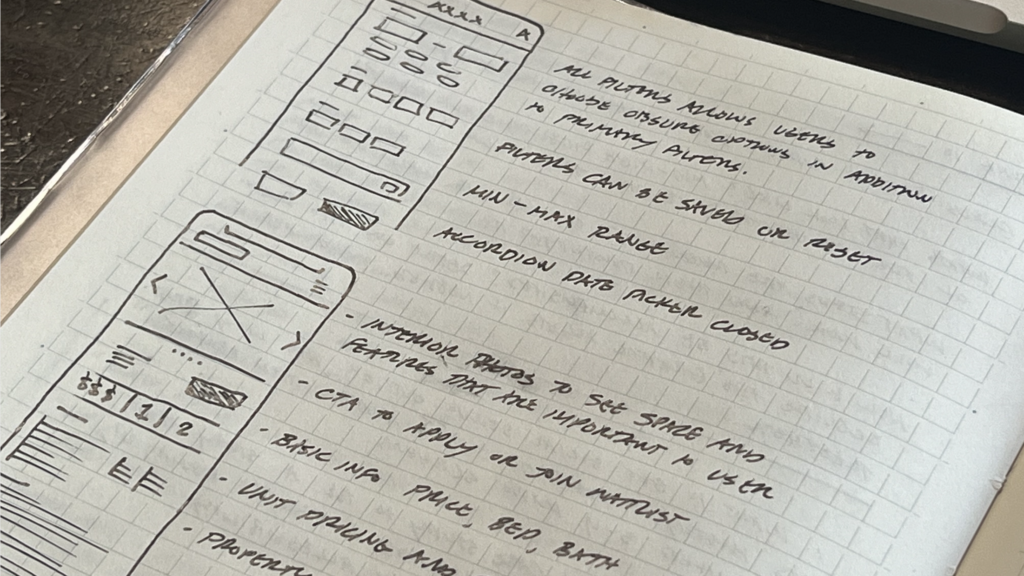 ALL FILTERS ALLOWS USERS TO
CHOOSE OBSURE OPTIONS IN ADDITION
TO PRIMARY FILTERS.
FILTERS CAN BE SAVED OR RESET
MIN - MAX RANGE
ACCORDION DATE PICKER CLOSED
- INTERIOR PHOTOS TO SEE SPACE AND
FEATURES THAT ARE IMPORTANT TO USER
- CTA TO APPLY OR JOIN WAITLIST
- BASIC INFO PRICE, BED, BATH
- UNIT PRICING AND
- PROPERTY
$$$ | 1 | 2